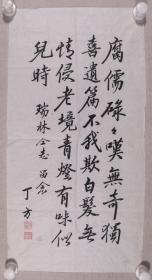 腐儒碌々嘆無奇獨
喜遺篇不我欺白髮無
情侵老境青燈有味似
兒時 瑞林仝志留念
丁方